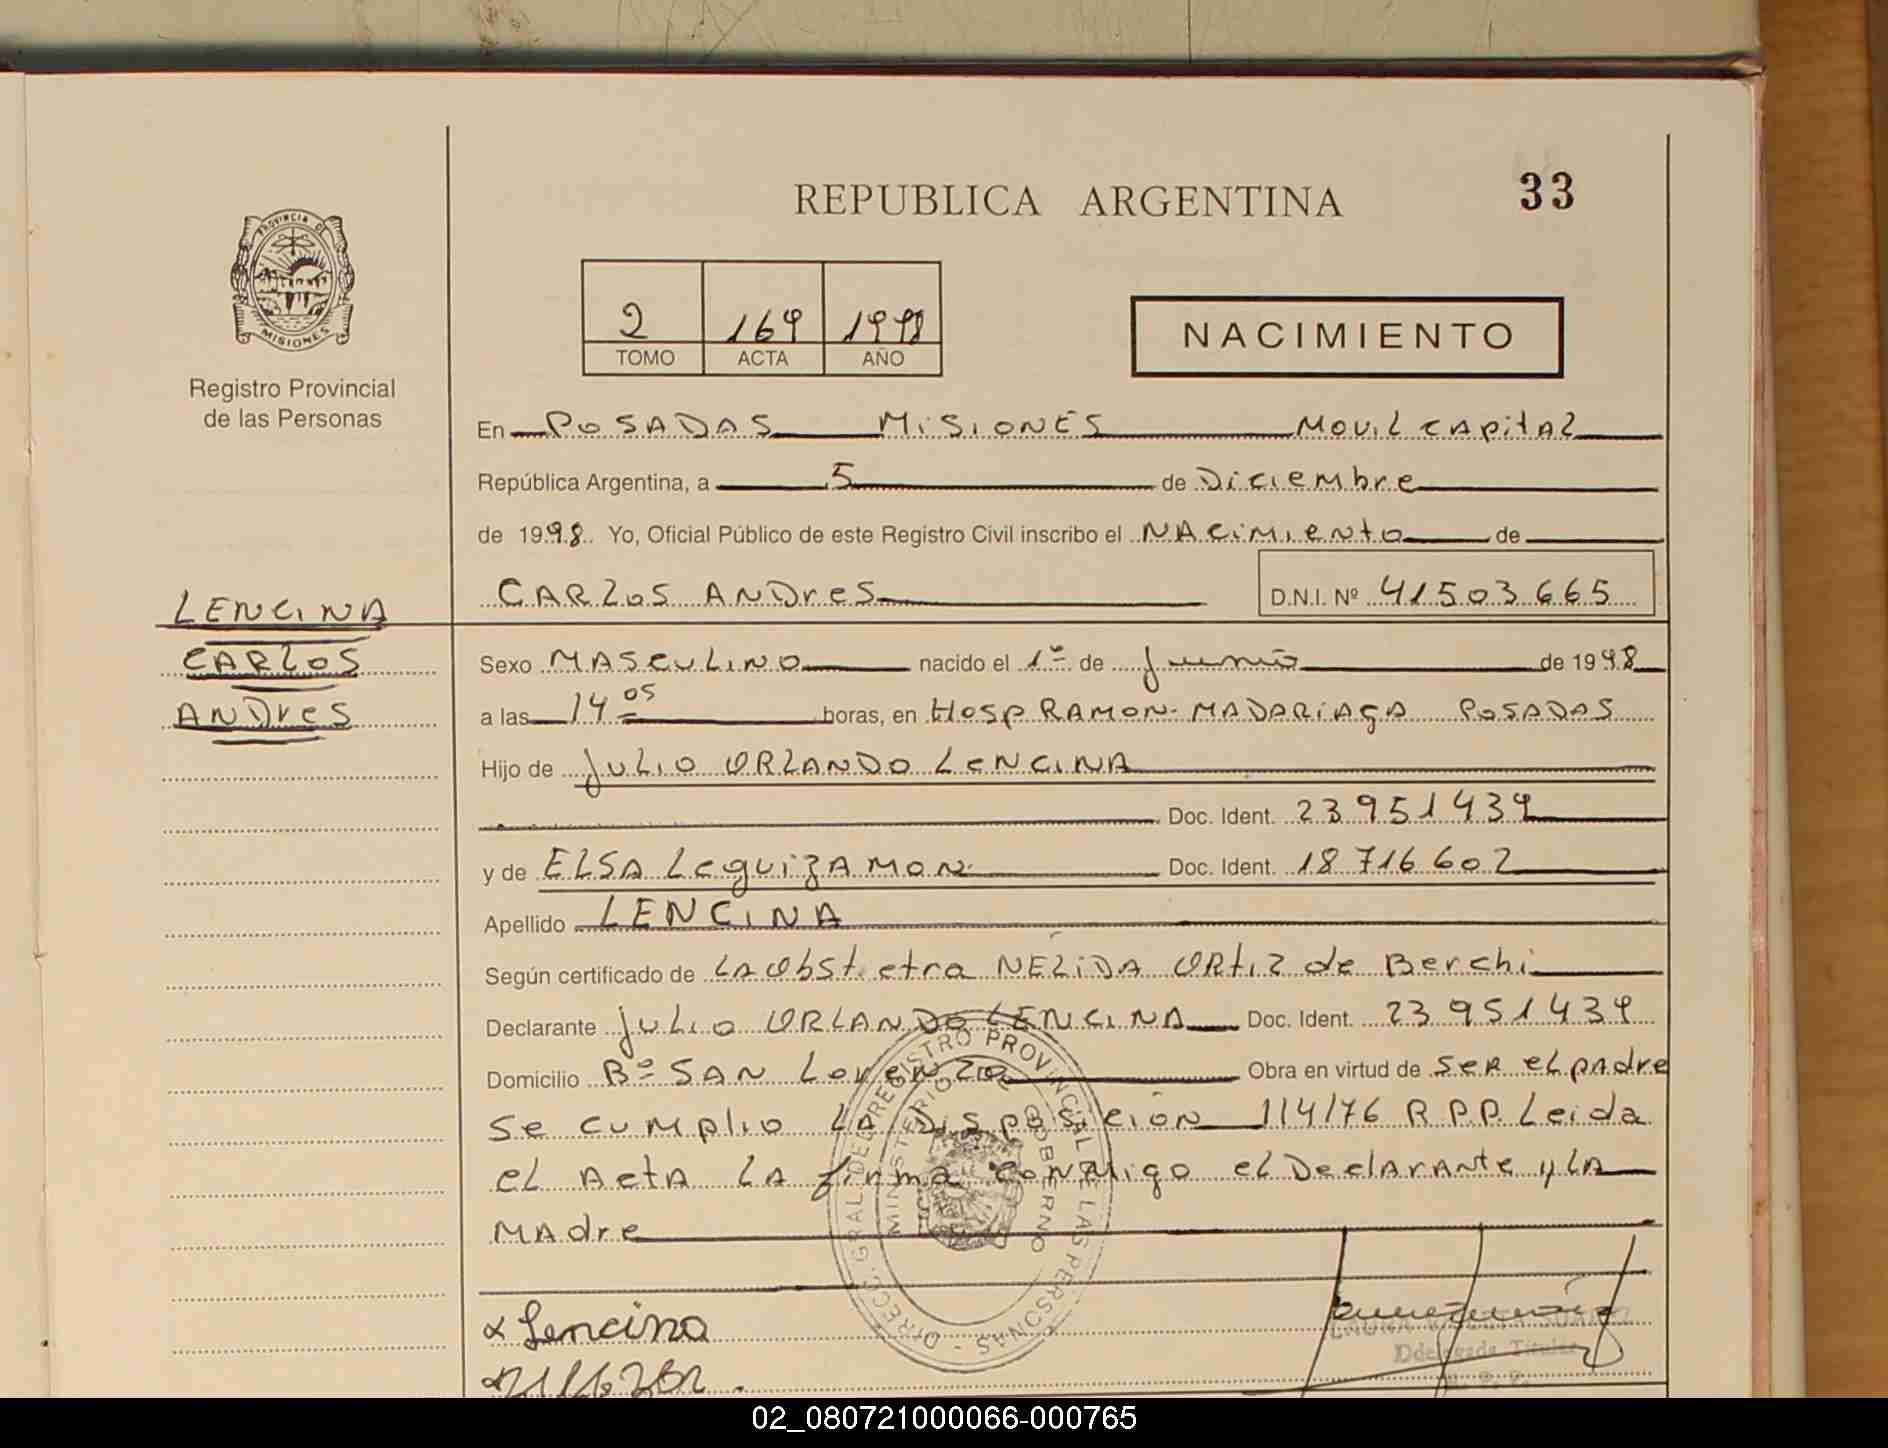 33
REPUBLICA ARGENTINA
PROVINCIA DE
MISIONES
Registro Provincial
de las Personas
2 169 1998
TOMO ACTA AÑO
NACIMIENTO
En POSADAS MISIONES MOVIL CAPITAL
República Argentina, a 5 de Diciembre
de 1998. Yo, Oficial Público de este Registro Civil inscribo el NACIMIENTO de
CARLOS ANDRES D.N.I. Nº 41503665
LENCINA
CARLOS
ANDRES
Sexo MASCULINO nacido el 1º de Junio de 1998
a las 14 05 horas, en HOSP RAMON MADARIAGA POSADAS
Hijo de JULIO ORLANDO LENCINA
Doc. Ident. 23951439
y de ELSA LEGUIZAMON Doc. Ident. 18716602
Apellido LENCINA
Según certificado de LA Obstetra NÉLIDA ORTIZ de Berchi
Declarante JULIO ORLANDO LENCINA Doc. Ident. 23951439
Domicilio Bº SAN Lorenzo Obra en virtud de SER EL padre
Se cumplio LA Disposicion 114/76 R.P.P. Leida
el Acta LA firma conmigo el Declarante y LA
MAdre
DIREC. GRAL. DEL REGISTRO PROVINCIAL DE LAS PERSONAS -
MINISTERIO DE GOBIERNO
Lencina
Ddelegada Titular
R. P. P.
02_080721000066-000765